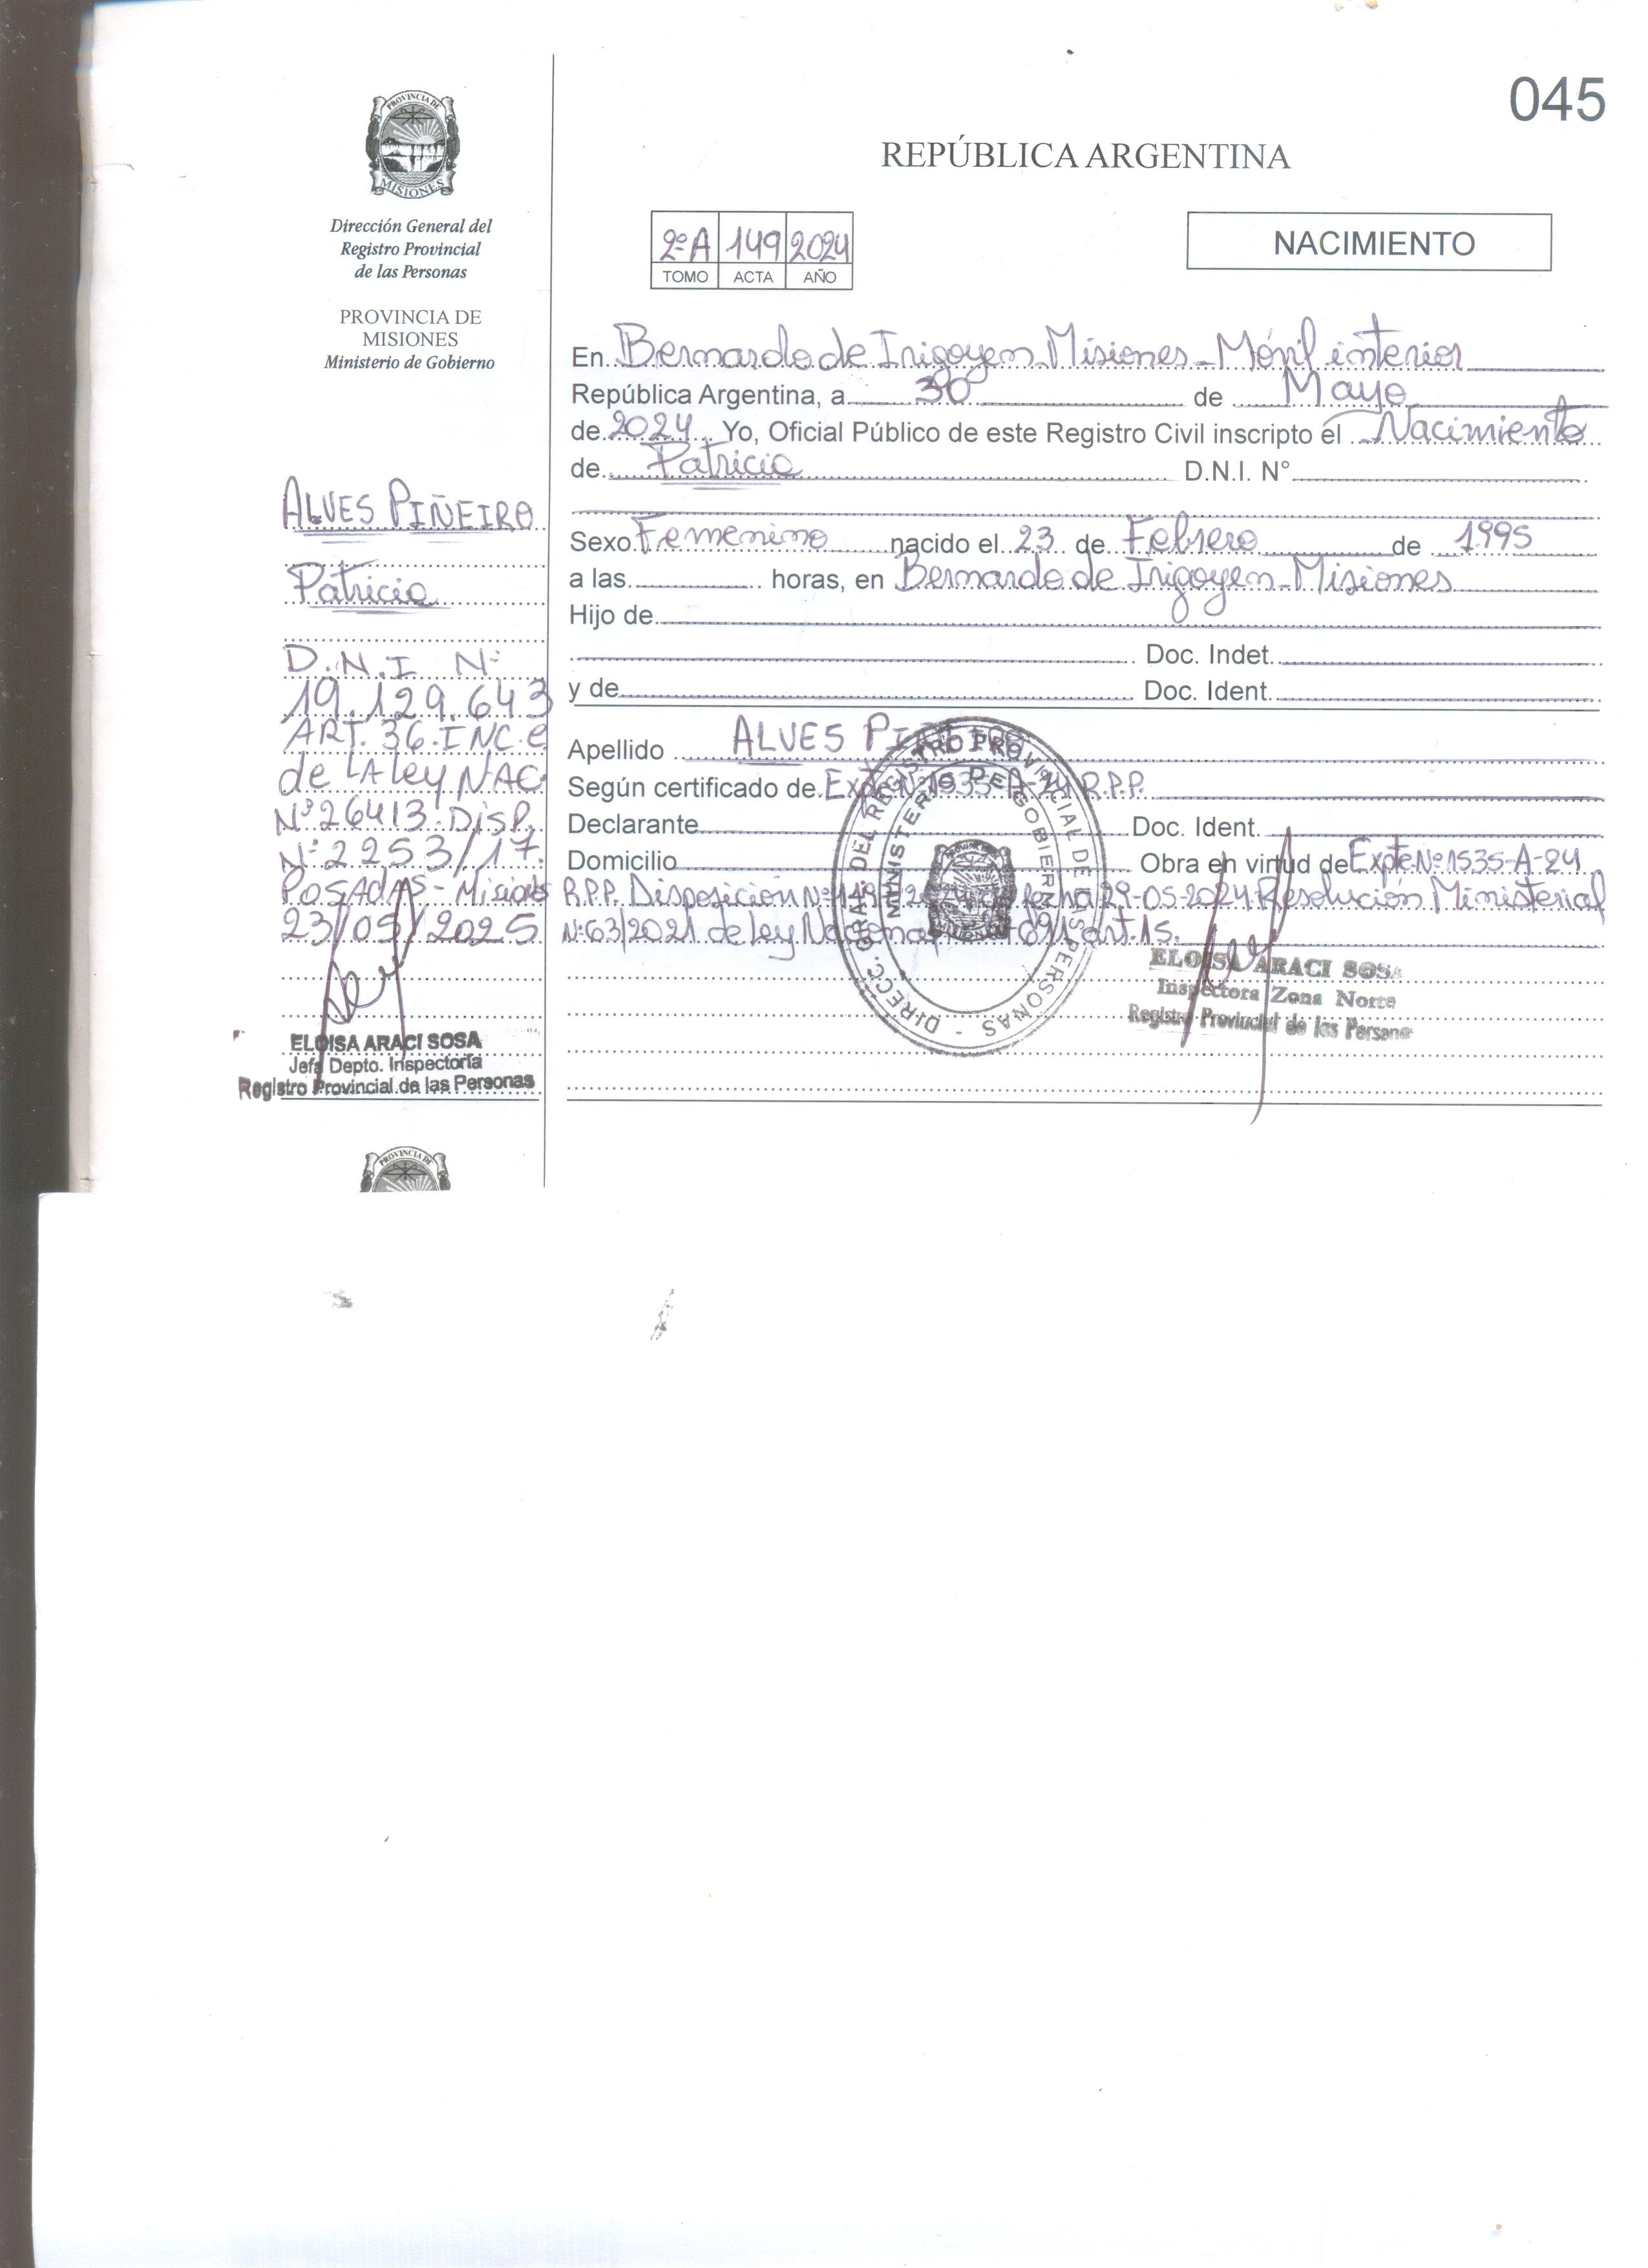 045
PROVINCIA DE
MISIONES
Dirección General del
Registro Provincial
de las Personas
PROVINCIA DE
MISIONES
Ministerio de Gobierno
ALVES PIÑEIRO
Patricia
D.N.I Nº
19.129.643
ART. 36. INC. e
de LA ley NAC
Nº 26413. DISP.
Nº 2253/17.
POSADAS - Misiones
23/05/2025
ELOISA ARACI SOSA
Jefa Depto. Inspectoría
Registro Provincial de las Personas
REPÚBLICA ARGENTINA
2º A 149 2024
TOMO ACTA AÑO
NACIMIENTO
En Bernardo de Irigoyen - Misiones - Móvil interior
República Argentina, a 30 de Mayo
de 2024 Yo, Oficial Público de este Registro Civil inscripto el Nacimiento
de Patricia D.N.I. N°
Sexo Femenino nacido el 23 de Febrero de 1995
a las horas, en Bernardo de Irigoyen - Misiones
Hijo de
Doc. Indet.
y de Doc. Ident.
Apellido ALVES PIÑEIRO
Según certificado de Expte Nº 1535-A-24 R.P.P.
Declarante Doc. Ident.
Domicilio Obra en virtud de Expte Nº 1535-A-24
R.P.P. Disposición Nº fecha 29-05-2024 Resolución Ministerial
Nº 63/2021 de ley art. 15.
DIRECC. GRAL. DEL REGISTRO PROVINCIAL DE LAS PERSONAS -
MINISTERIO DE GOBIERNO
MISIONES
ELOISA ARACI SOSA
Inspectora Zona Norte
Registro Provincial de las Persona
PROVINCIA DE